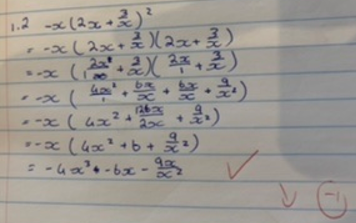 1.2 -x(2x + 3/x)²
= -x(2x + 3/x)(2x + 3/x)
= -x(2x/1 + 3/x)(2x/1 + 3/x)
= -x(4x²/1 + 6x/x + 6x/x + 9/x²)
= -x(4x² + 126x/2x + 9/x²)
= -x(4x² + 6 + 9/x²)
= -4x³ - 6x - 9x/x²
-1